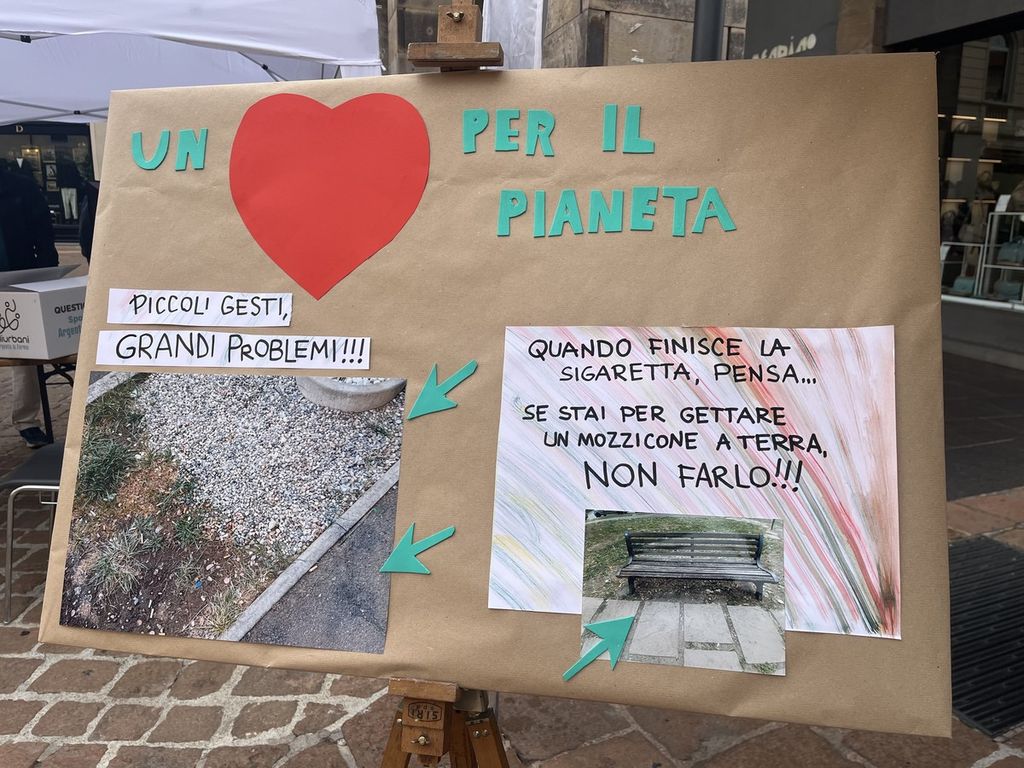 UN PER IL
PIANETA
PICCOLI GESTI,
GRANDI PROBLEMI!!!
QUANDO FINISCE LA
SIGARETTA, PENSA...
SE STAI PER GETTARE
UN MOZZICONE A TERRA,
NON FARLO!!!
QUESTI